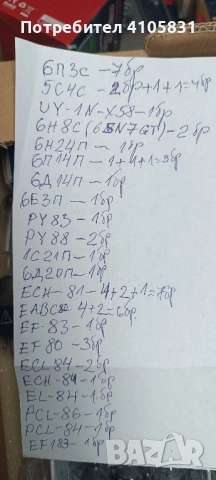 Потребител 4105831
6П3С - 7бр
5С4С - 2бр+1+1=4бр
UY-1N-X58-1бр
6Н8С(6SN7GT)-2бр
6Н24П - 1бр
6П14П - 1+1+1=3бр
6Д14П - 1бр
6Е3П - 1бр
PY83 - 1бр
PY88 - 2бр
1С21П - 1бр
6Д20П - 1бр
ECH-81-4+2+1=7бр
EABC80 4+2=6бр.
EF-83-1бр
EF80-3бр
ECL-84-2бр
ECH-84-1бр
EL-84-1бр
PCL-86-1бр
PCL-84-1бр
EF183-1бр
BAZAR